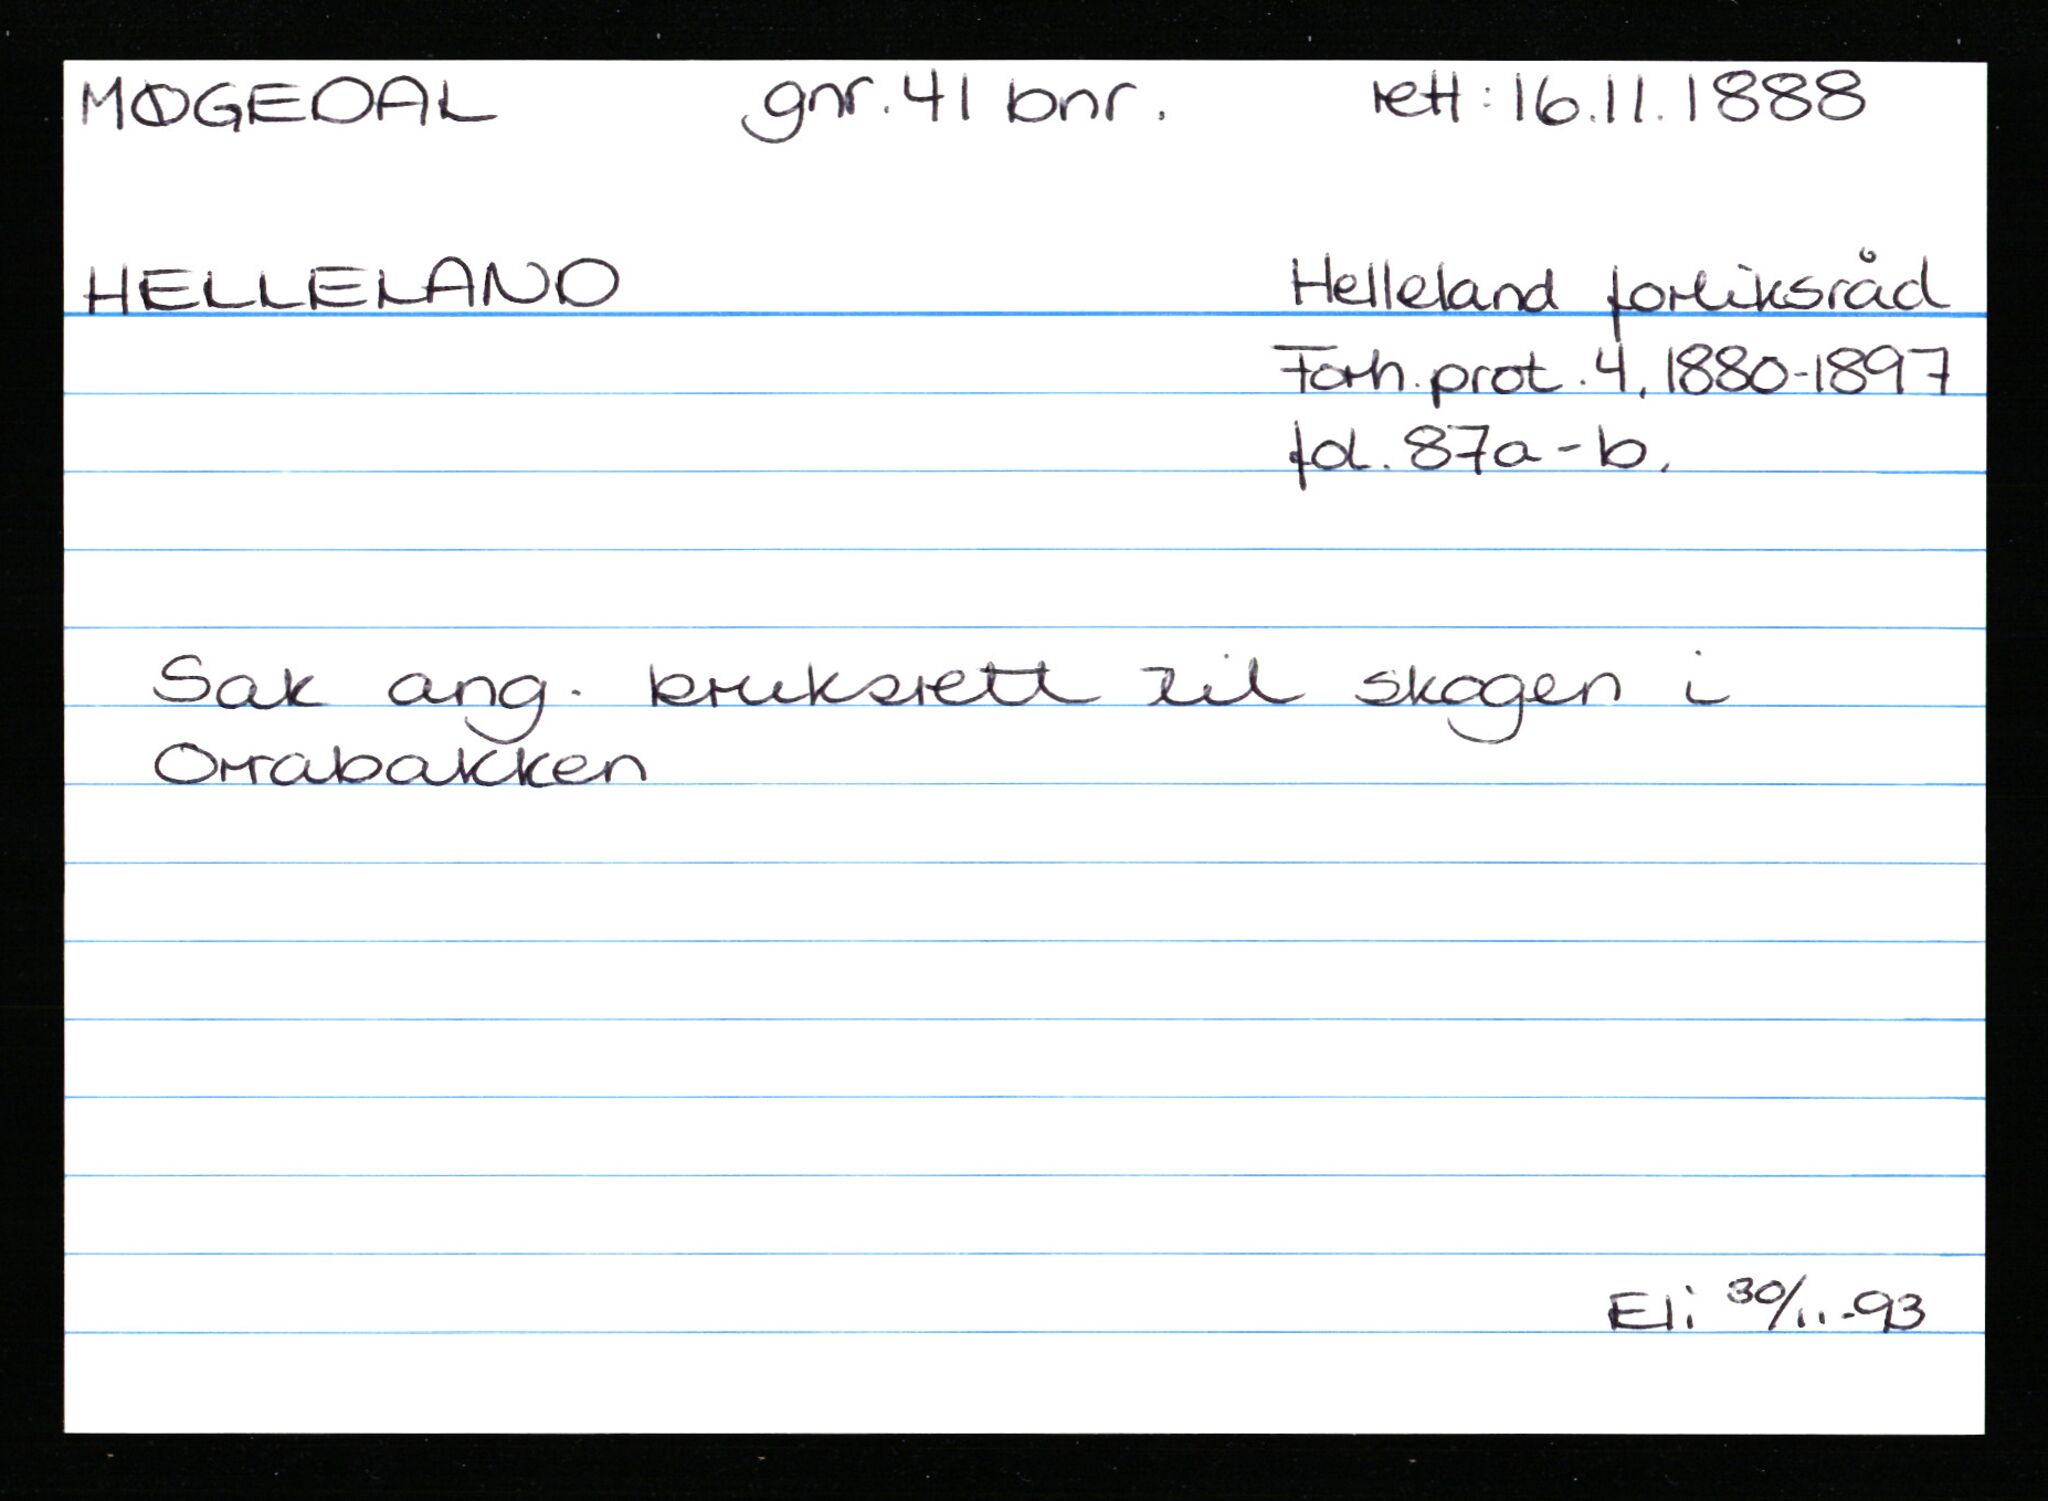 MØGEDAL gnr. 41 bnr. rett: 16.11.1888
HELLELAND Helleland forliksråd
Forh. prot. 4, 1880-1897
fol. 87a-b.
Sak ang. bruksrett til skogen i
Orrabakken
Eli 30/11-93